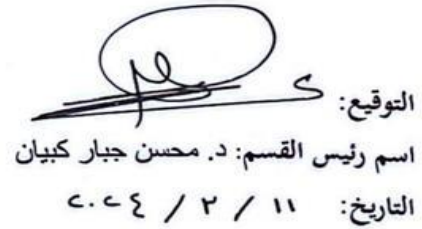 التوقيع:
اسم رئيس القسم: د. محسن جبار كبيان
التاريخ: ١١ / ٢ / ٢٠٢٤